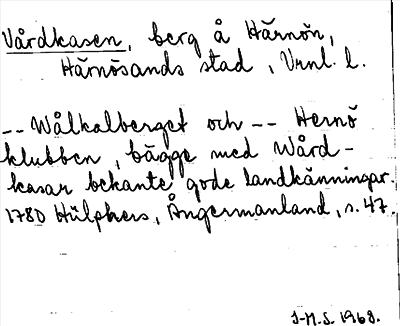 Vårdkasen, berg å Härnön,
Härnösands stad, Vrnl. l.
-- Wålkalberget och -- Hernö
klubben, bägge med Wård-
kasar bekante gode landkänningar.
1780 Hülphers, Ångermanland, s. 47.
J-M.S. 1968.